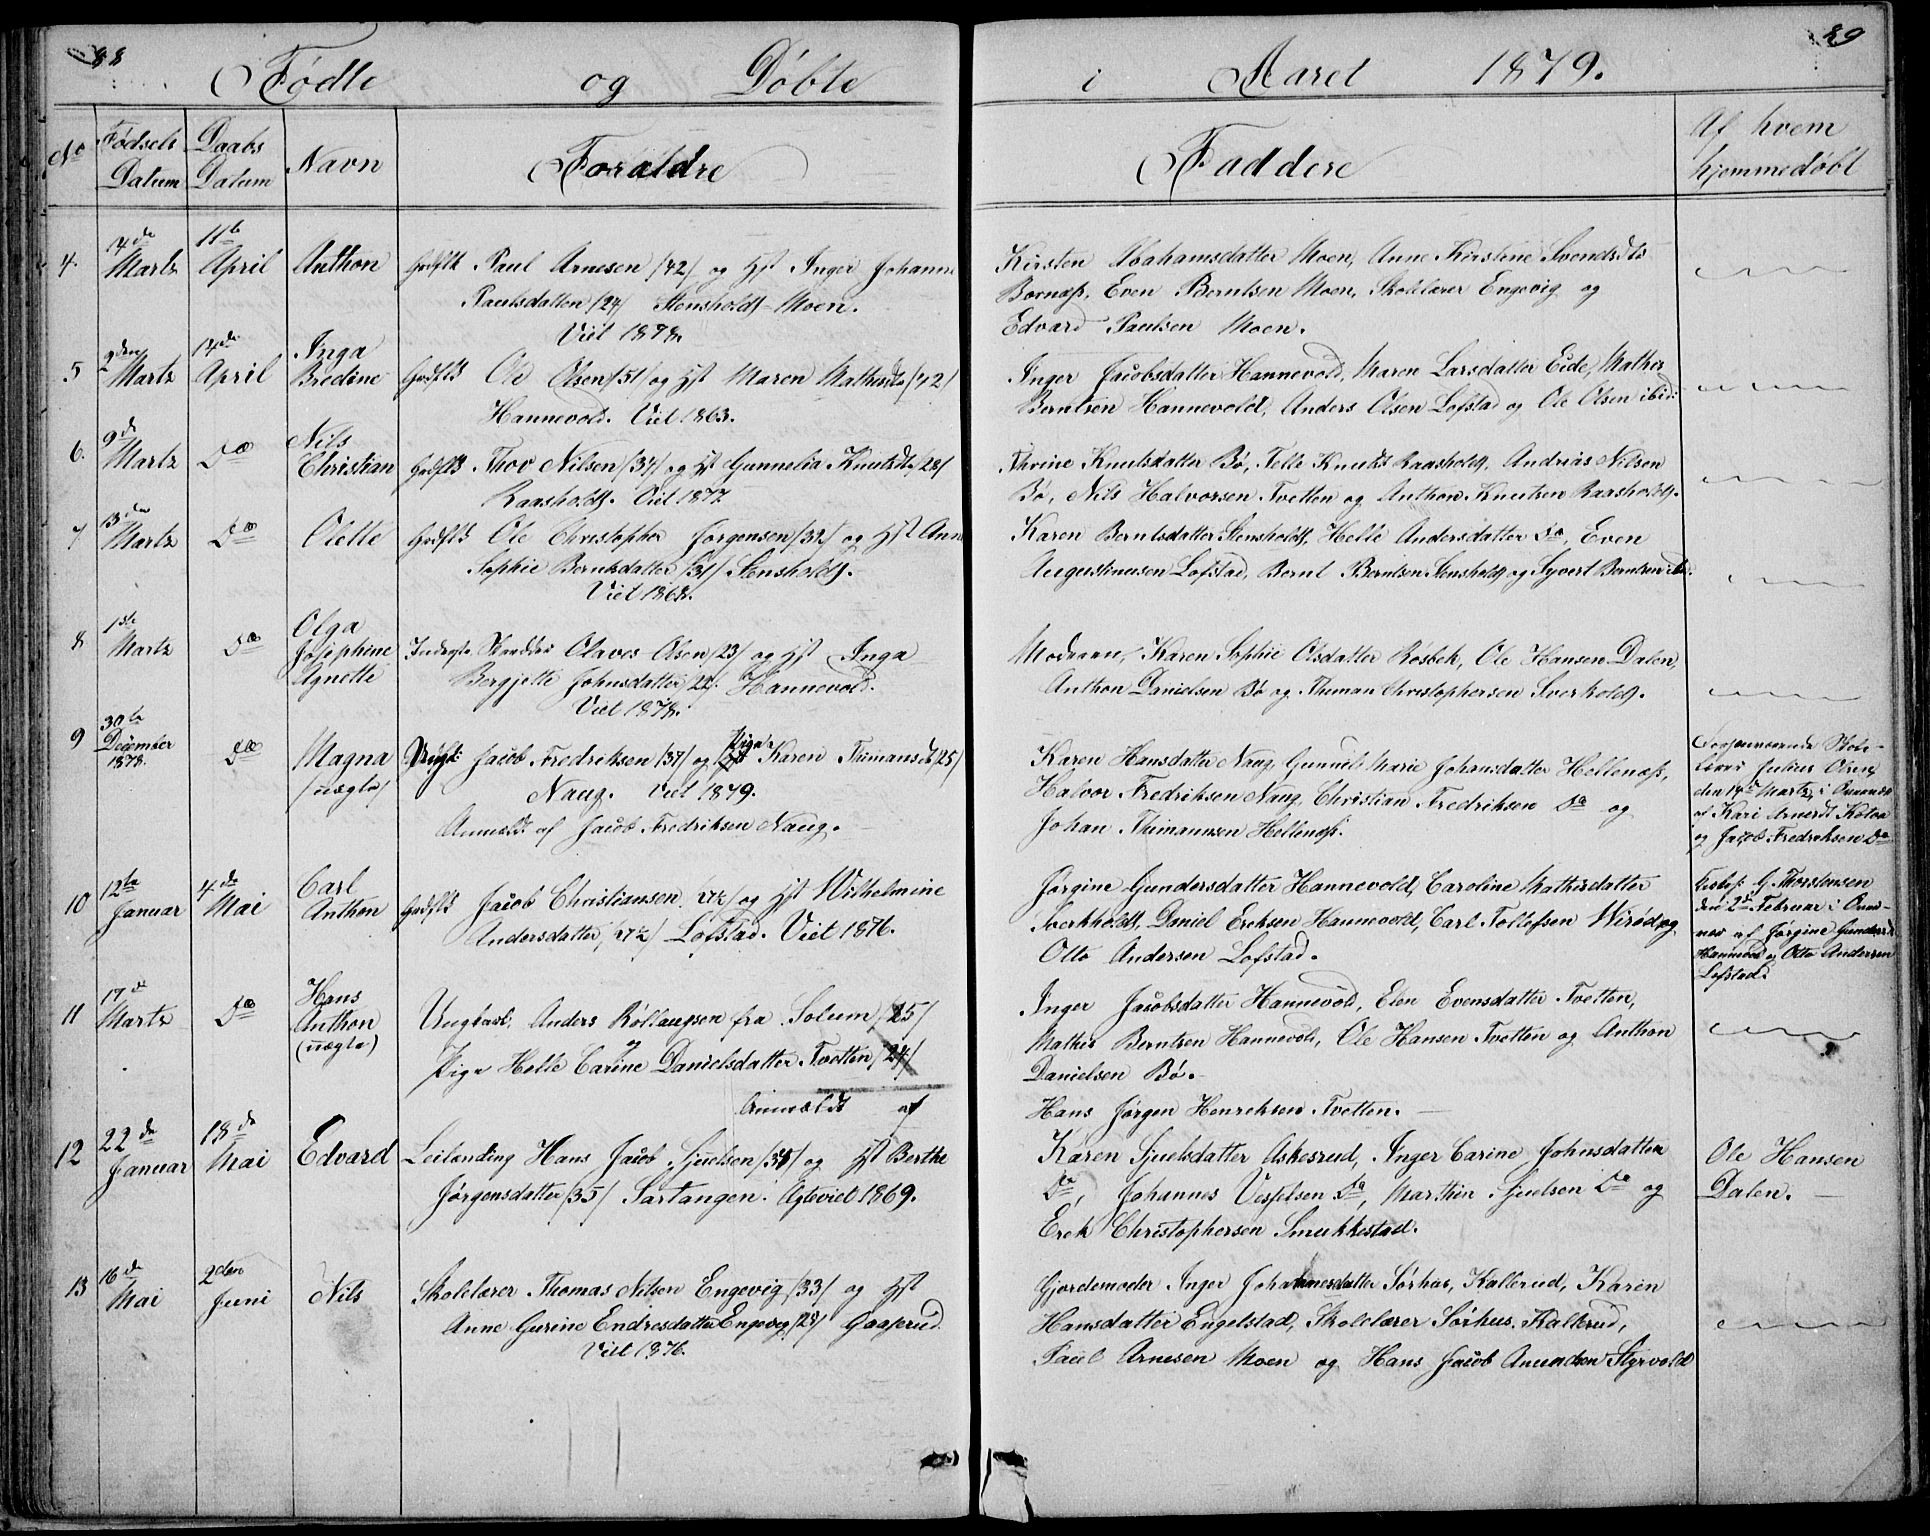 88
89
Fødte og Døbte i Aaret 1879.
No
Fødsels Datum
Daabs Datum
Navn
Forældre
Faddere
Af hvem hjemmedøbt
4.
14de Martz
11te April
Anthon
Grdslk Paul Arnesen /42/ og Hst Inger Johanne
Paulsdatter /24/ Stensholdt-Moen.
Viet 1878.
Kirsten Abahamsdatter Moen, Anne Kirstine Svendsdts
Bornæss, Even Berntsen Moen, Skolelærer Engevig og
Edvard Paulsen Moen.
5
2den Martz
14de April
Inga Bredine
Grdslk Ole Olsen /51/ og Hst Maren Mathisdtr /42/
Hannevold. Viet 1863.
Inger Jacobsdatter Hannevold, Maren Larsdatter Eide, Mathis
Berntsen Hannevold, Anders Olsen Lofstad og Ole Olsen ibid:
6.
9de Martz
Do
Nils Christian
Grdslk Thov Nilsen /34/ og Hst Gunnelia Knutsdtr /28/
Raasholdt. Viet 1877
Thrine Knutsdatter Bø, Telle Knutsdt Raasholdt, Andrias Nilsen
Bø, Nils Halvorsen Tvetten og Anthon Knutsen Raasholdt.
7
13de Martz
Do
Olette
Grdslk Ole Christopher Jørgensen /32/ og Hst Ann
Sophie Berntsdatter /31/ Stensholdt.
Viet 1868.
Karen Berntsdatter Stensholdt, Helle Andersdatter do, Even
Augustinusen Lofstad, Bernt Berntsen Stensholdt og Syvert Berntsen ibid.
8
1ste Martz
Do
Olga Josephine Agnette
Inderste Skrædder Olaves Olsen /23/ og Hst Inga
Bergjette Johnsdatter /22/ Hannevold.
Viet 1878.
Moderen, Karen Sophie Olsdatter Rosbek, Ole Hansen Dalen,
Anthon Danielsen Bø og Thuman Christophersen Sverholdt.
9
30te December 1878.
do
Magna
/uægte/
Ungk: Jacob Fredriksen /37/ og Pige Karen Thimansdt /25/
Naug. Viet 1879.
Anmeldt af Jacob Fredriksen Naug.
Karen Hansdatter Naug, Gunnil Marie Johansdatter Hellenæss,
Halvor Fredriksen Naug, Christian Fredriksen Do og
Johan Thimannsen Hellenæss.
Forhenværende Skole-
lærer Julius Olsen
den 14de Martz, i Overvær
af Kari Arnesdt Kolaa
og Jacob Fredriksen Do
10
12te Januar
4de Mai
Carl Anthon
Grdslk Jacob Christiansen og Hst Wilhelmine
Andersdatter, Lofstad. Viet 1876.
Jørgine Gundersdatter Hannevold, Caroline Mathisdatter
Sverkholdt, Daniel Eriksen Hannevold, Carl Tollefsen Wirød og
Otto Andersen Lofstad.
G. Thorstensen
den 2de Februar i Over-
vær af Jørgine Gundersd
Hannevold og Otto Andersen
Lofstad.
11
17de Martz
Do
Hans Anthon
(uægte)
Ungkarl, Anders Rollaugsen fra Solum /25/
Pige Helle Carine Danielsdatter Tvetten /24/
Anmeldt af
Inger Jacobsdatter Hannevold, Elen Evensdatter Tvetten,
Mathis Berntsen Hannevold, Ole Hansen Tvetten og Anthon
Danielsen Bø.
Hans Jørgen Henriksen Tvetten.
12
22de Januar
18de Mai
Edvard
Leilænding Hans Jacob Sjuelsen /34/ og Hst Berthe
Jørgensdatter /35/ Sartangen. Egteviet 1869.
Karen Sjuelsdatter Askesrud, Inger Carine Johnsdatter
Do, Johannes Vespelsen Do, Marthin Sjuelsen Do og
Erek Christophersen Smukkestad.
Ole Hansen
Dalen.
13
16de Mai
2den Juni
Nils
Skolelærer Thomas Nilsen Engevig /33/ og Hst
Anne Gurine Endresdatter Engevig /28/ Gaaserud.
Viet 1876.
Gjordemoder Inger Johannesdatter Sørhus, Kallerud, Karen
Hansdatter Engelstad, Skolelærer Sørhus, Kallerud,
Paul Arnesen Moen og Hans Jacob Anundsen Styrvold